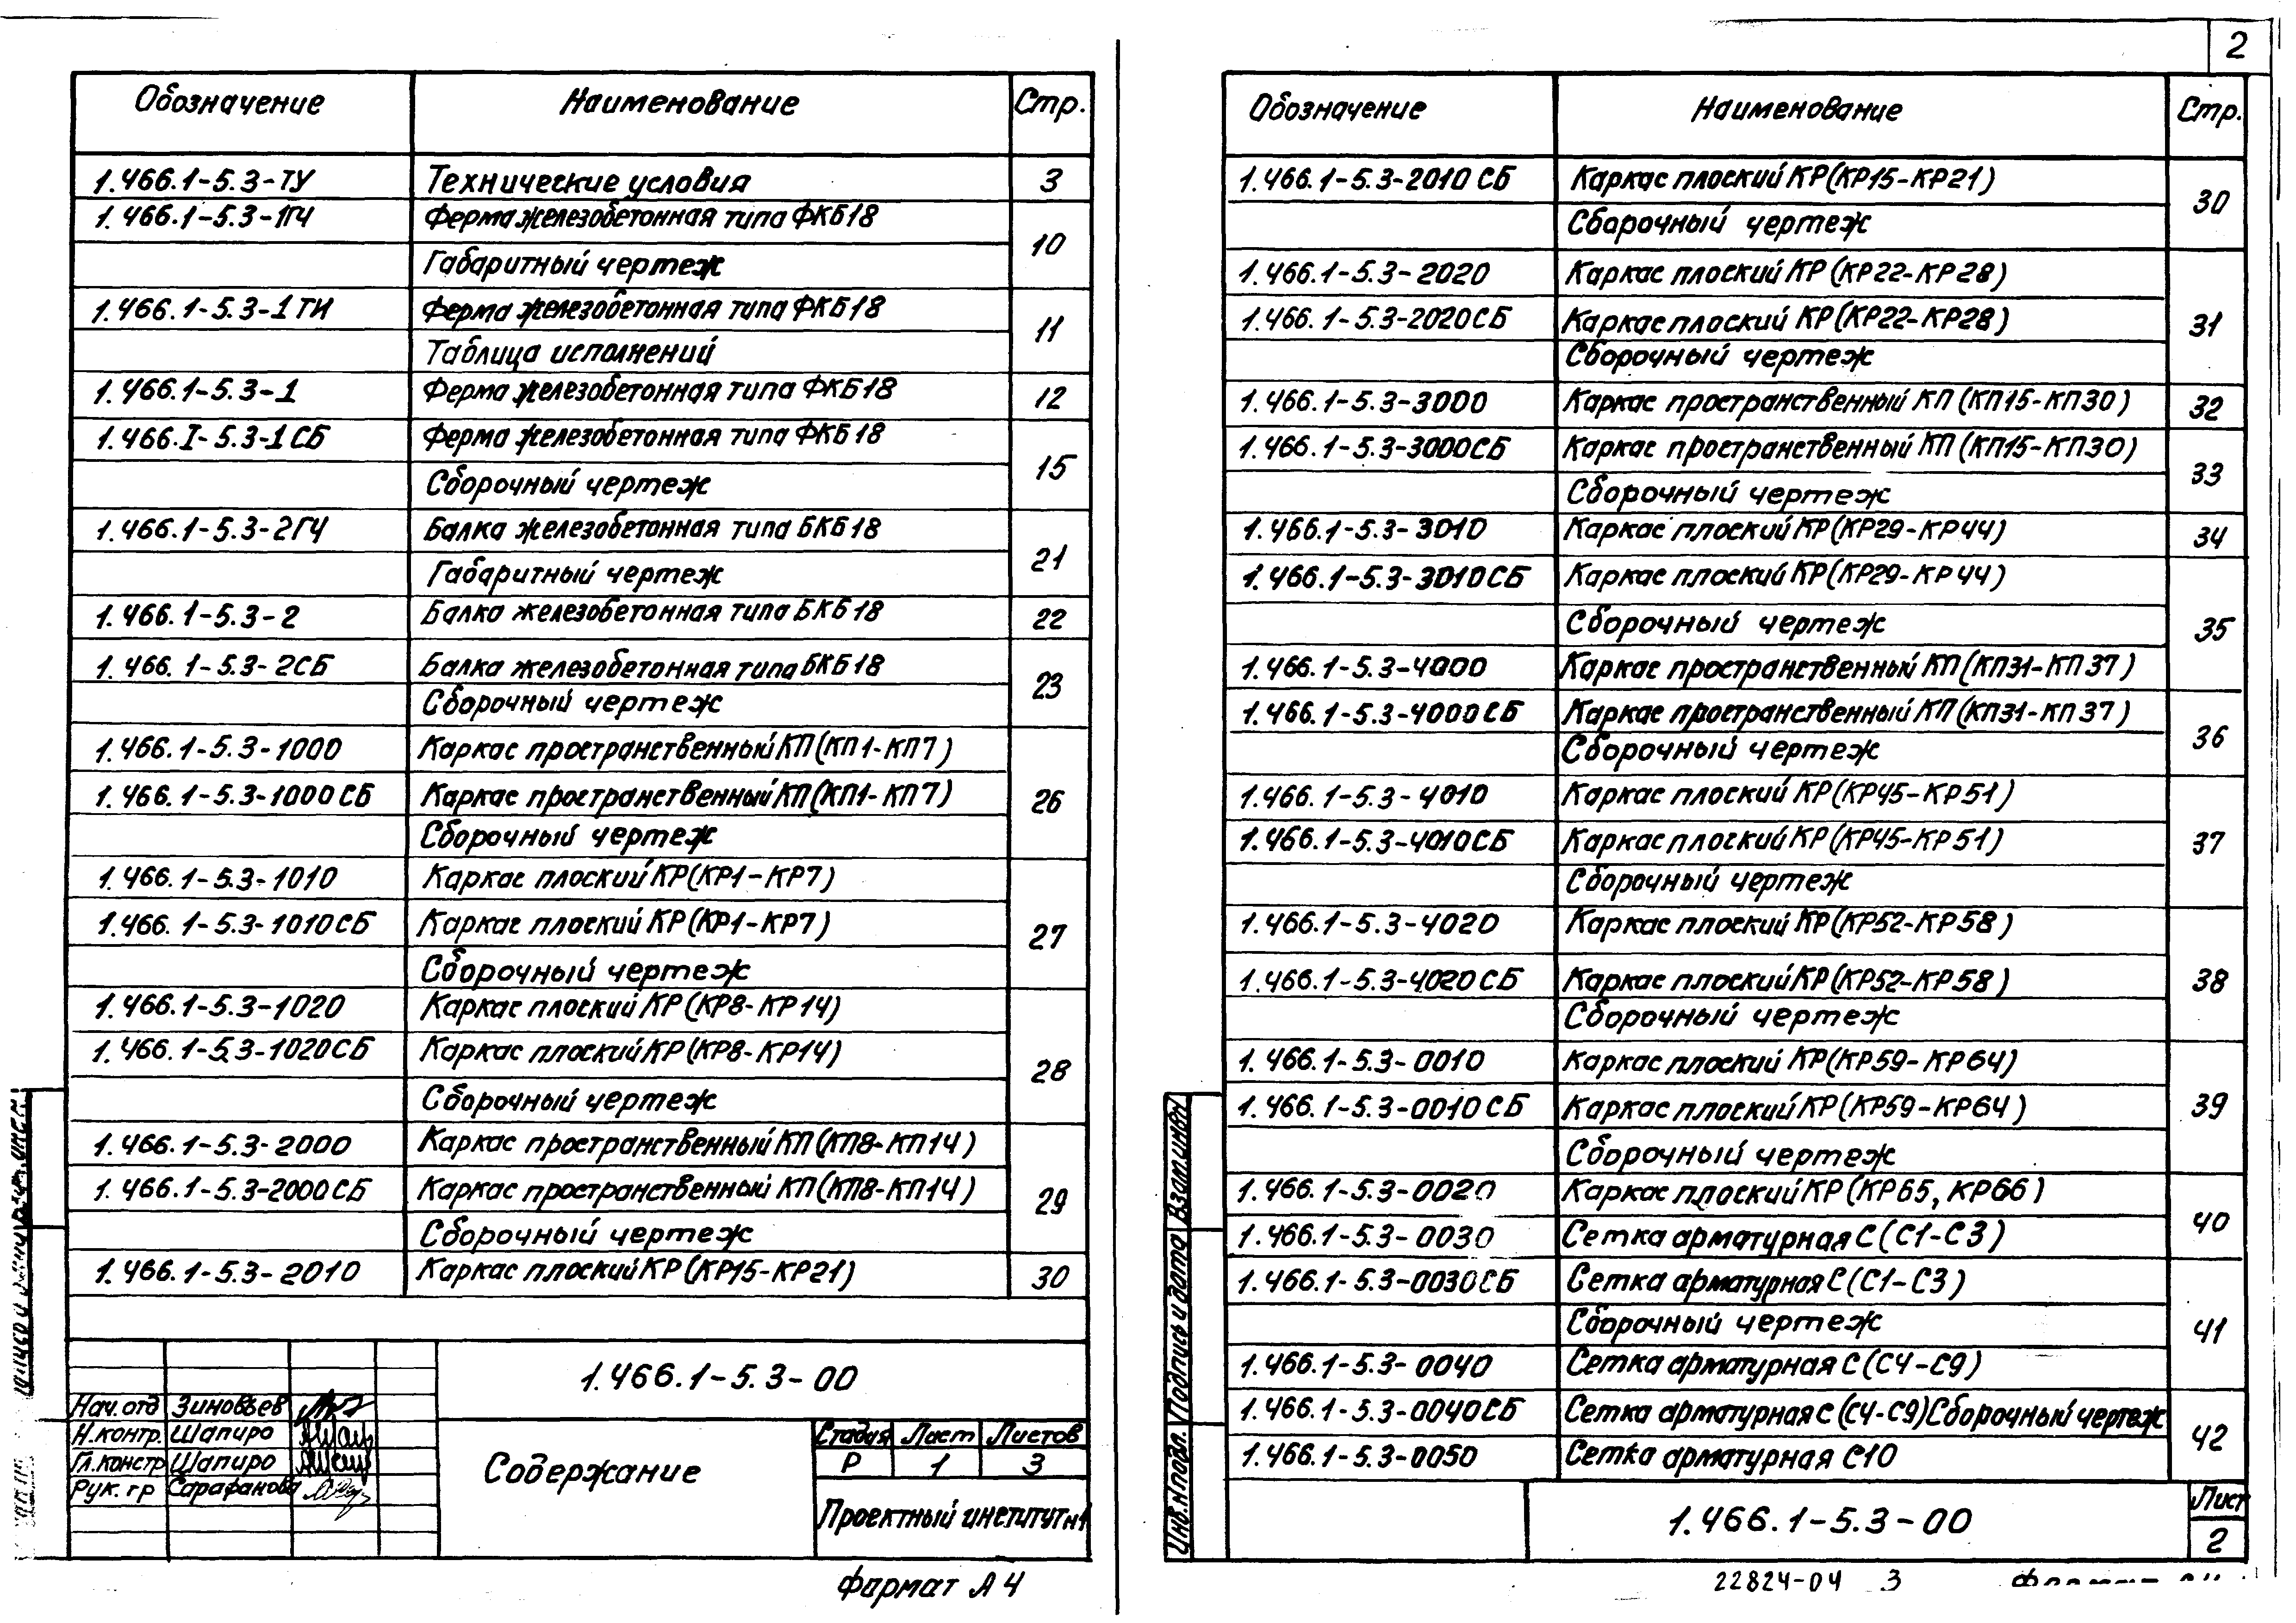 Обозначение Наименование Стр.
1.466.1-5.3-ТУ Технические условия 3
1.466.1-5.3-1ГЧ Ферма железобетонная типа ФКБ18
Габаритный чертеж 10
1.466.1-5.3-1ТИ Ферма железобетонная типа ФКБ18
Таблица исполнений 11
1.466.1-5.3-1 Ферма железобетонная типа ФКБ18 12
1.466.I-5.3-1СБ Ферма железобетонная типа ФКБ18
Сборочный чертеж 15
1.466.1-5.3-2ГЧ Балка железобетонная типа БКБ18
Габаритный чертеж 21
1.466.1-5.3-2 Балка железобетонная типа БКБ18 22
1.466.1-5.3-2СБ Балка железобетонная типа БКБ18
Сборочный чертеж 23
1.466.1-5.3-1000 Каркас пространственный КП(КП1-КП7)
1.466.1-5.3-1000СБ Каркас пространственный КП(КП1-КП7) 26
Сборочный чертеж
1.466.1-5.3-1010 Каркас плоский КР(КР1-КР7)
1.466.1-5.3-1010СБ Каркас плоский КР(КР1-КР7) 27
Сборочный чертеж
1.466.1-5.3-1020 Каркас плоский КР(КР8-КР14)
1.466.1-5.3-1020СБ Каркас плоский КР(КР8-КР14) 28
Сборочный чертеж
1.466.1-5.3-2000 Каркас пространственный КП(КП8-КП14)
1.466.1-5.3-2000СБ Каркас пространственный КП(КП8-КП14) 29
Сборочный чертеж
1.466.1-5.3-2010 Каркас плоский КР(КР15-КР21) 30
1.466.1-5.3-00
Нач.отд Зиновьев
Н.контр. Шапиро
Гл.констр Шапиро
Рук.гр Сарафанова
Содержание
Стадия Лист Листов
Р 1 3
Проектный институт №1
Формат А4
2
Обозначение Наименование Стр.
1.466.1-5.3-2010СБ Каркас плоский КР(КР15-КР21)
Сборочный чертеж 30
1.466.1-5.3-2020 Каркас плоский КР(КР22-КР28)
1.466.1-5.3-2020СБ Каркас плоский КР(КР22-КР28) 31
Сборочный чертеж
1.466.1-5.3-3000 Каркас пространственный КП(КП15-КП30) 32
1.466.1-5.3-3000СБ Каркас пространственный КП(КП15-КП30)
Сборочный чертеж 33
1.466.1-5.3-3010 Каркас плоский КР(КР29-КР44) 34
1.466.1-5.3-3010СБ Каркас плоский КР(КР29-КР44)
Сборочный чертеж 35
1.466.1-5.3-4000 Каркас пространственный КП(КП31-КП37)
1.466.1-5.3-4000СБ Каркас пространственный КП(КП31-КП37)
Сборочный чертеж 36
1.466.1-5.3-4010 Каркас плоский КР(КР45-КР51)
1.466.1-5.3-4010СБ Каркас плоский КР(КР45-КР51) 37
Сборочный чертеж
1.466.1-5.3-4020 Каркас плоский КР(КР52-КР58)
1.466.1-5.3-4020СБ Каркас плоский КР(КР52-КР58) 38
Сборочный чертеж
1.466.1-5.3-0010 Каркас плоский КР(КР59-КР64)
1.466.1-5.3-0010СБ Каркас плоский КР(КР59-КР64) 39
Сборочный чертеж
1.466.1-5.3-0020 Каркас плоский КР(КР65, КР66)
1.466.1-5.3-0030 Сетка арматурная С(С1-С3) 40
1.466.1-5.3-0030СБ Сетка арматурная С(С1-С3)
Сборочный чертеж 41
1.466.1-5.3-0040 Сетка арматурная С(С4-С9)
1.466.1-5.3-0040СБ Сетка арматурная С(С4-С9)Сборочный чертеж
1.466.1-5.3-0050 Сетка арматурная С10 42
1.466.1-5.3-00
Лист
2
Инв.№подл. Подпись и дата Взам.инв№
22824-04 3